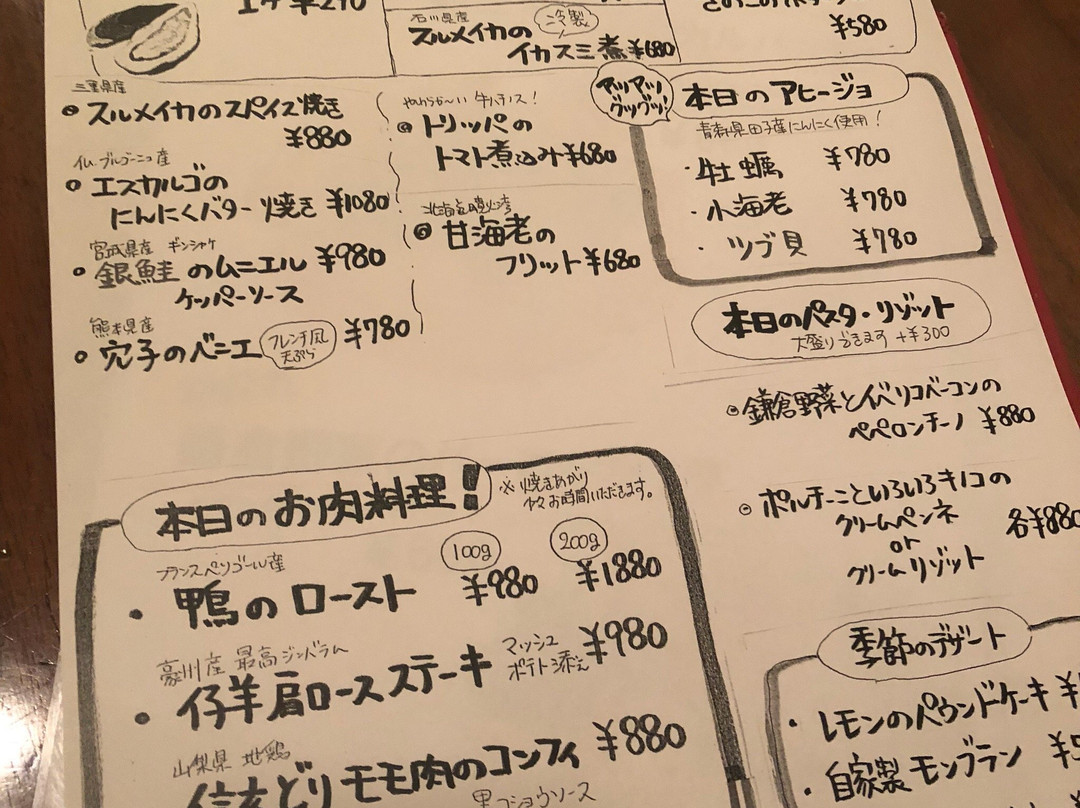 石川県産
スルメイカの 冷製
イカスミ煮 ¥680
¥580
三重県産
スルメイカのスパイス焼き
¥880
仏、ブルゴーニュ産
エスカルゴの
にんにくバター焼き ¥1080
宮城県産 ギンシャケ
銀鮭のムニエル ¥980
ケッパーソース
熊本県産
穴子のベニエ フレンチ風天ぷら ¥780
やわらか〜い 牛ハチノス!
トリッパの
トマト煮込み ¥680
北海道噴火湾
甘海老の
フリット ¥680
アツアツ
グツグツ!
本日のアヒージョ
青森県田子産にんにく使用!
・牡蠣 ¥780
・小海老 ¥780
・ツブ貝 ¥780
本日のパスタ・リゾット
大盛りできます +¥300
鎌倉野菜とイベリコベーコンの
ペペロンチーノ ¥880
ポルチーニといろいろキノコの
クリームペンネ
or
クリームリゾット
各¥880
本日のお肉料理!
※焼きあがり
お時間いただきます。
100g 200g
フランスペリゴール産
・鴨のロースト ¥980 ¥1880
豪州産 最高
・仔羊肩ロースステーキ マッシュポテト添え ¥980
山梨県 地鶏
信玄どりモモ肉のコンフィ ¥880
黒コショウソース
季節のデザート
・レモンのパウンドケーキ
・自家製モンブラン